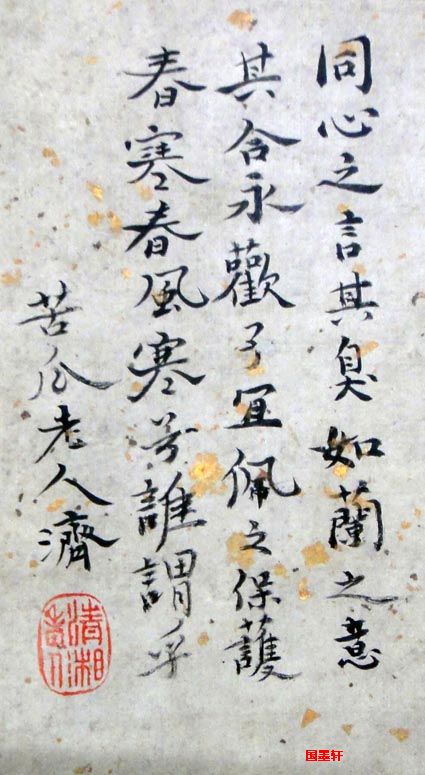 同心之言其臭如蘭之意
其合永歡予宜佩之保護
春寒春風寒兮誰謂乎
苦瓜老人濟
清湘
国墨轩